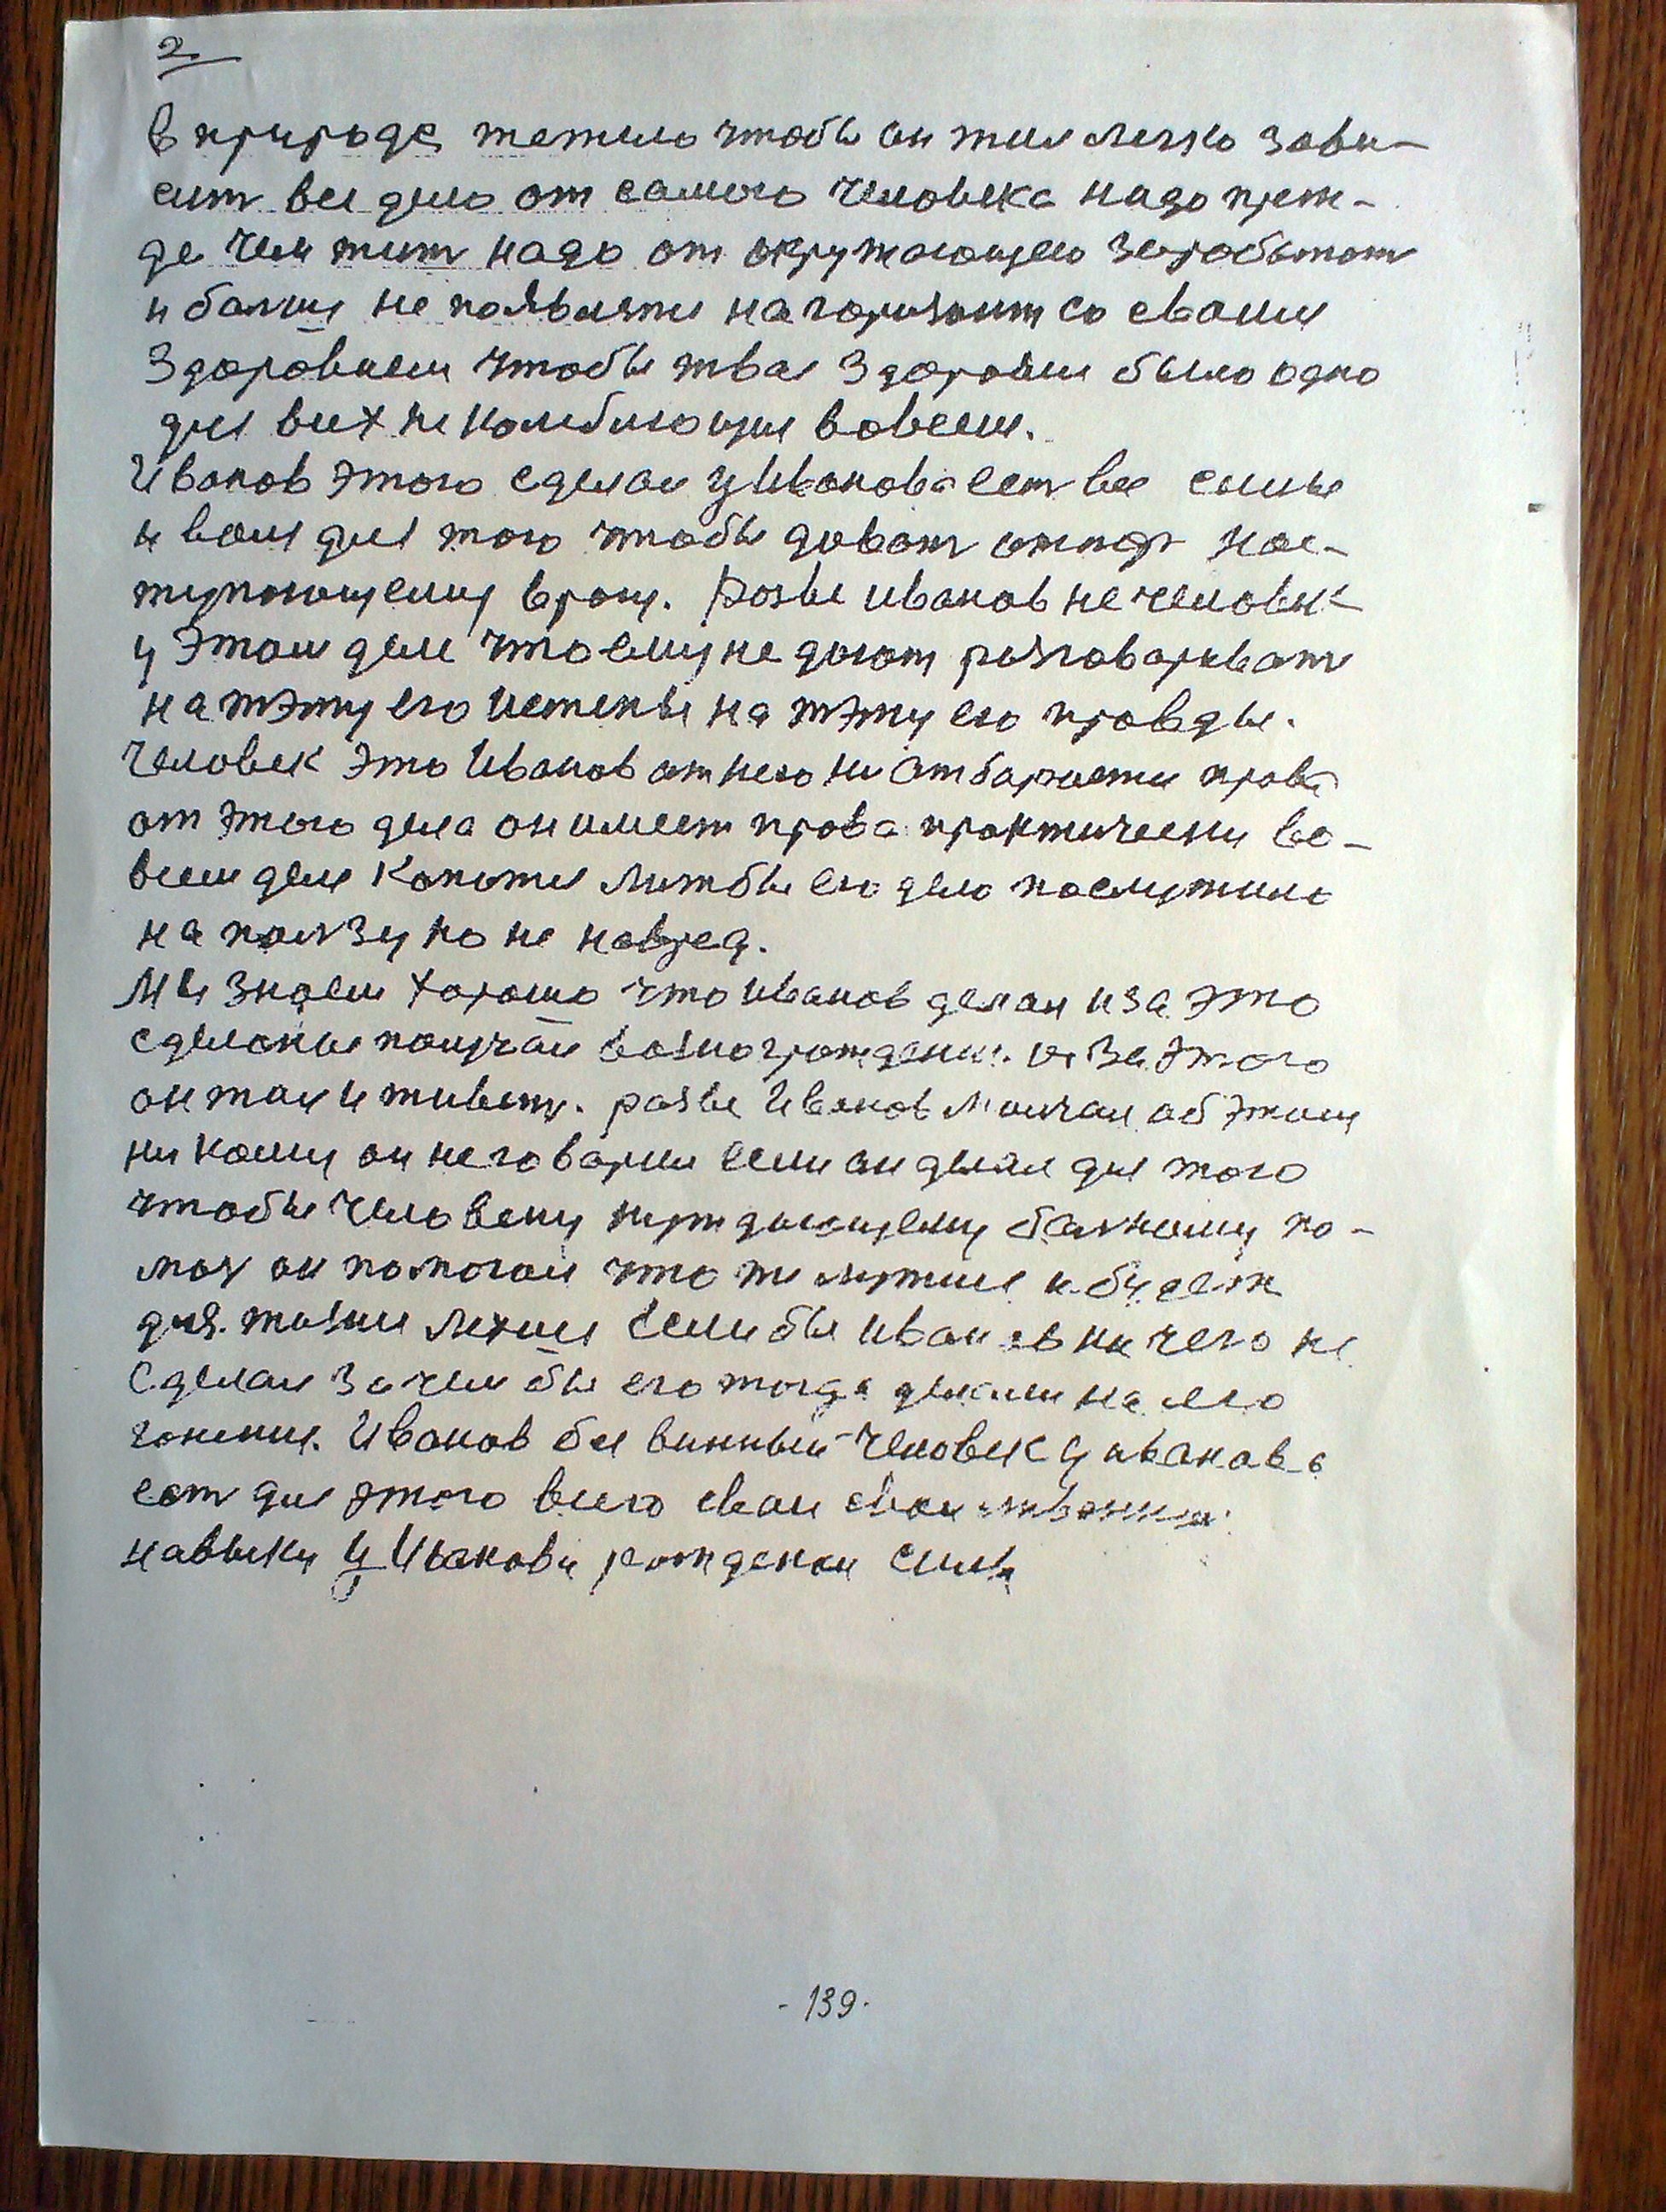 2.
В природе тежило чтобы он жил легко зави-
сит все дело от самого человека надо преж-
де чем жит надо от окружающего заработат
и болши не появлятся на горизонт со своим
здоровием чтобы твое здоровия было одно
для всех не колеблющия вовсем.
Иванов этого сделал у Иванова ест все силы
и воля для того чтобы довать отпор нас-
тупающему врагу. Розве иванов не человек
у этом деле что ему не дают розговарыват
на тэму его истены на тэму его правды.
Человек это Иванов от него не отбараетси права
от этого дела он имеет права практически во-
всем деле копатся лиш бы его дело послужило
на ползу но не навред.
Мы знаем хорошо что иванов делал и за это
сделоные получал вознограждение. и за этого
он так и живет. розве Иванов молчал об этом
ни кому он не говарил если он делал для того
чтобы человеку нуждающему болному по-
моч он помогал что же лутше и будет
для жизни легше если бы иванов ни чего не
сделал зачем бы его тогда делали на его
гонения. Иванов бы винный человек у иванова
ест для этого всего свои свои
навыки у Иванова рожденои силы
- 139 -